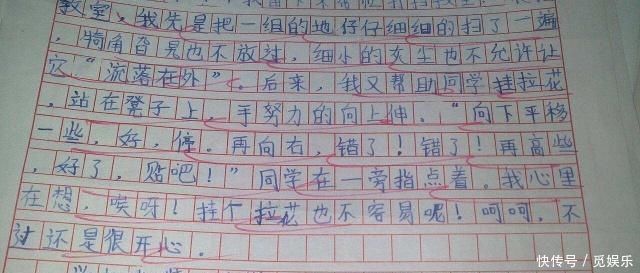 教室，我先是把一组的地仔仔细细的扫了一遍
，犄角旮旯也不放过，细小的灰尘也不允许让
它“流落在外”。后来，我又帮助同学挂拉花
，站在凳子上，手努力的向上伸。“向下平移
一些，好，停。再向右，错了！错了！再高些
，好了，贴吧！”同学在一旁指点着。我心里
在想，唉呀！挂个拉花也不容易呢！呵呵，不
过还是很开心。
快传号/觅娱乐